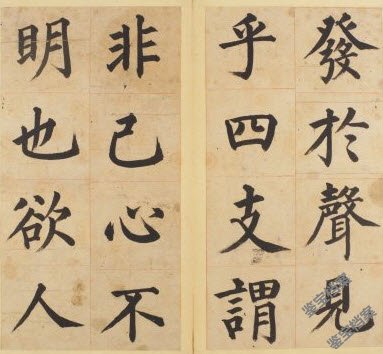 發於聲見
乎四支謂
非己心不
明也欲人
鉴宝档案